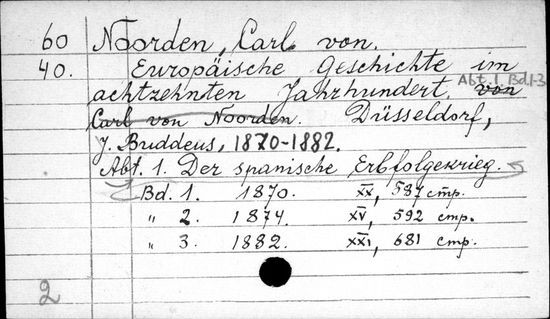 60 Noorden, Carl von.
40. Europäische Geschichte im
achtzehnten Jahrhundert, Abt. 1 Bd. 1-3 von
Carl von Noorden. Düsseldorf,
J. Buddeus, 1870-1882.
Abt. 1. Der spanische Erbfolgekrieg.
Bd. 1. 1870. XX, 587 стр.
„ 2. 1874. XV, 592 стр.
„ 3. 1882. XXI, 681 стр.
2